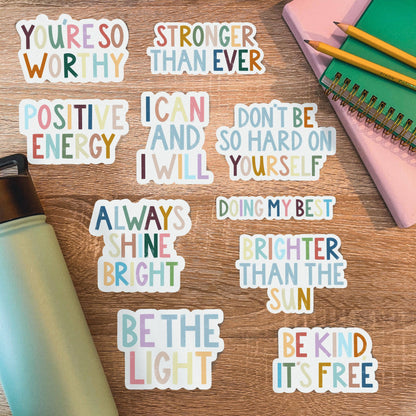 YOU'RE SO
WORTHY
STRONGER
THAN EVER
POSITIVE
ENERGY
I CAN
AND
I WILL
DON'T BE
SO HARD ON
YOURSELF
ALWAYS
SHINE
BRIGHT
DOING MY BEST
BRIGHTER
THAN THE
SUN
BE THE
LIGHT
BE KIND
IT'S FREE